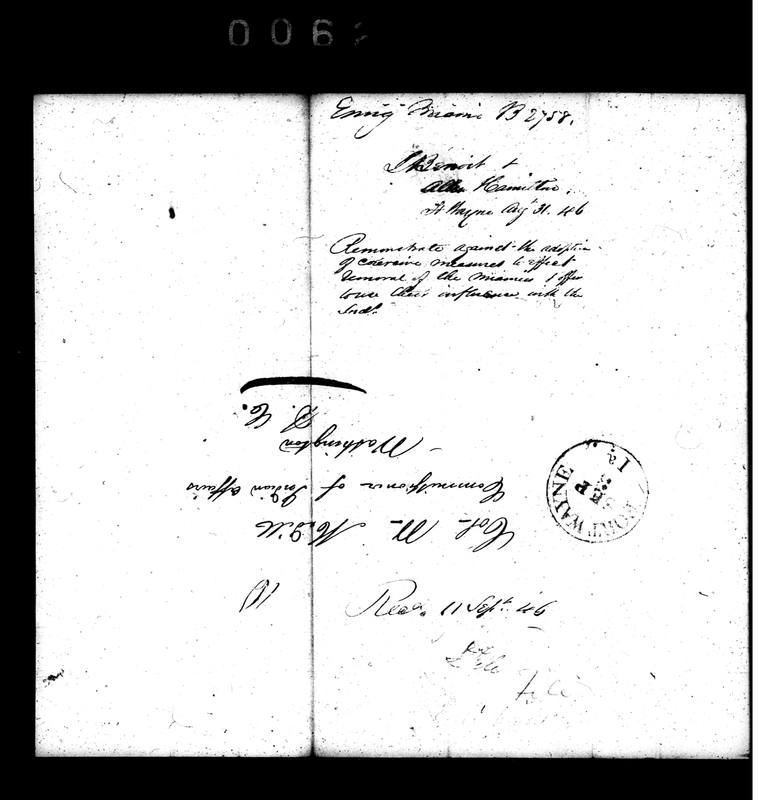 006
Emig Miami B 2758.
J Benoit &
Allen Hamilton,
Ft Wayne Augt 31. 46
Remonstrate against the adoption
of coercive measures to effect
removal of the Miamies & offer
to use their influence with the
Inds.
Col. M McGill
Commissioner of Indian Affairs
Washington
D. C.
FORT WAYNE
SEP
Ia.
10
Recd. 11 Sept. 46
File
File